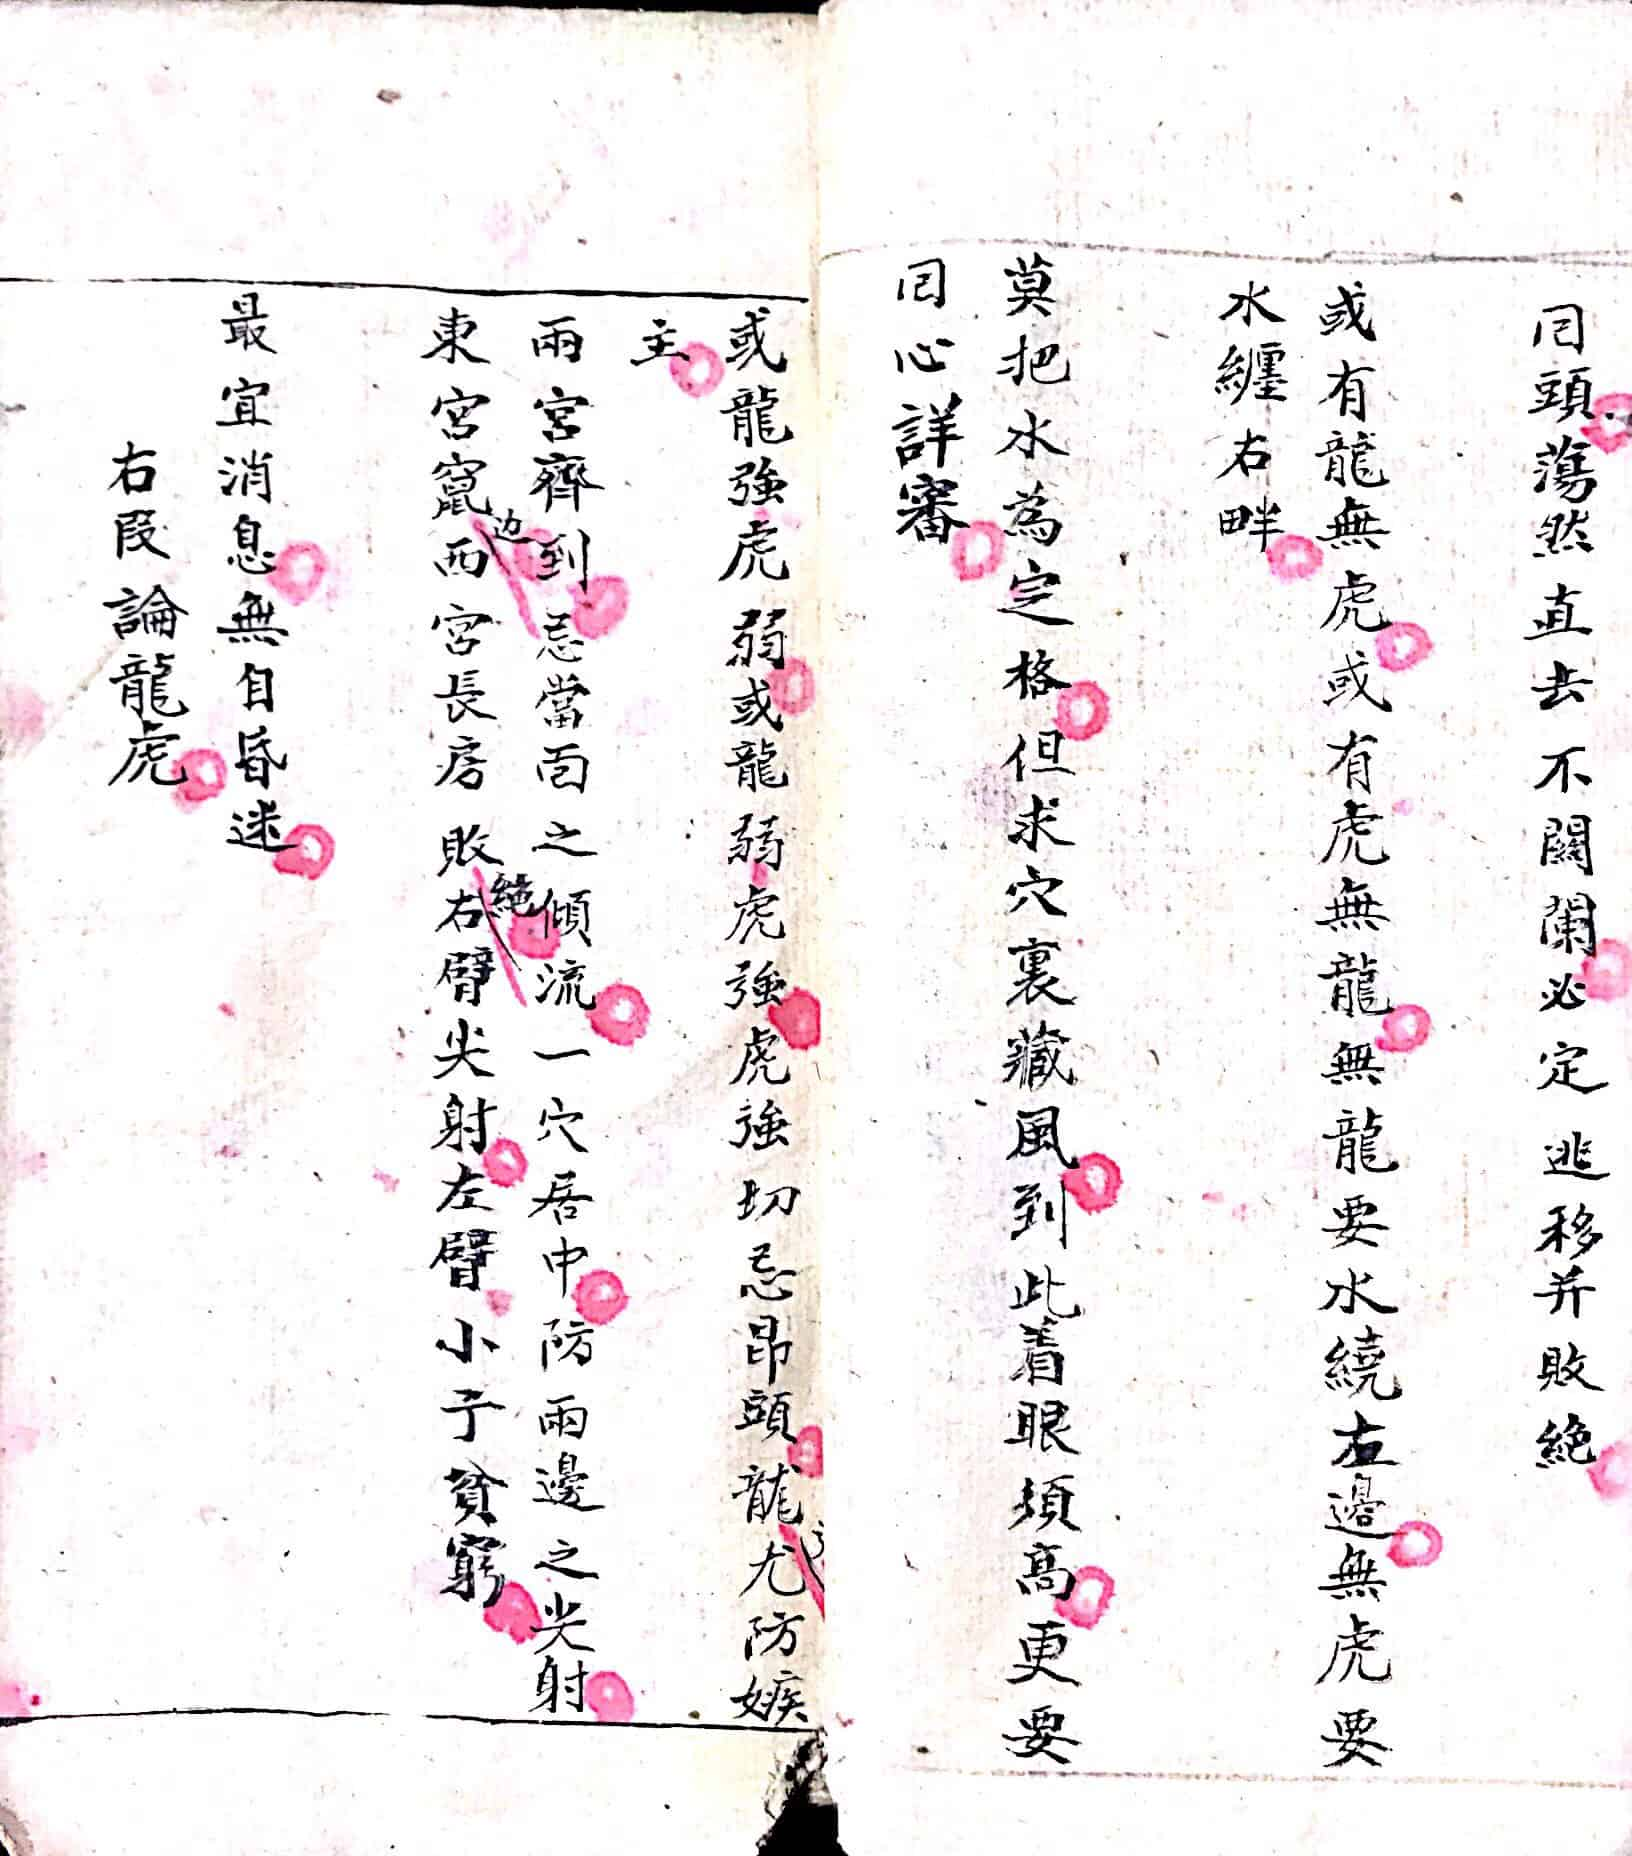 囘頭蕩然直去不關闌必定逃移并敗絶
或有龍無虎或有虎無龍無龍要水繞左邉無虎要
水纏右畔
莫把水為定格但求穴裏藏風到此着眼須高更要
囘心詳審
或龍強虎弱或龍弱虎強虎強切忌昂頭龍尤防嫉
主
兩宮齊到忌當面之傾流一穴居中防兩邊之尖射
東宮竄西宮長房敗右臂尖射左臂小子貧窮
边
絶
最宜消息無自昏迷
右段論龍虎